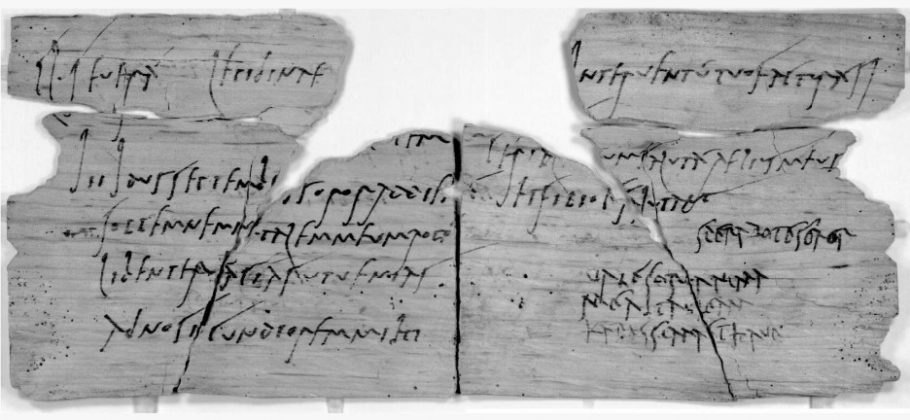 Cl · Severá Lepidinae
iii Idus Septembr s soror ad diem
sollemnem natalem meum rogó
libenter faciás ut venias
ad nos iucundiorem mihi
interventú tuo facturá si
Cerial uum salutá Aelius meus
et filiolus salutant
sperabo te soror
vale soror anima
mea ita valeam
karissima et have